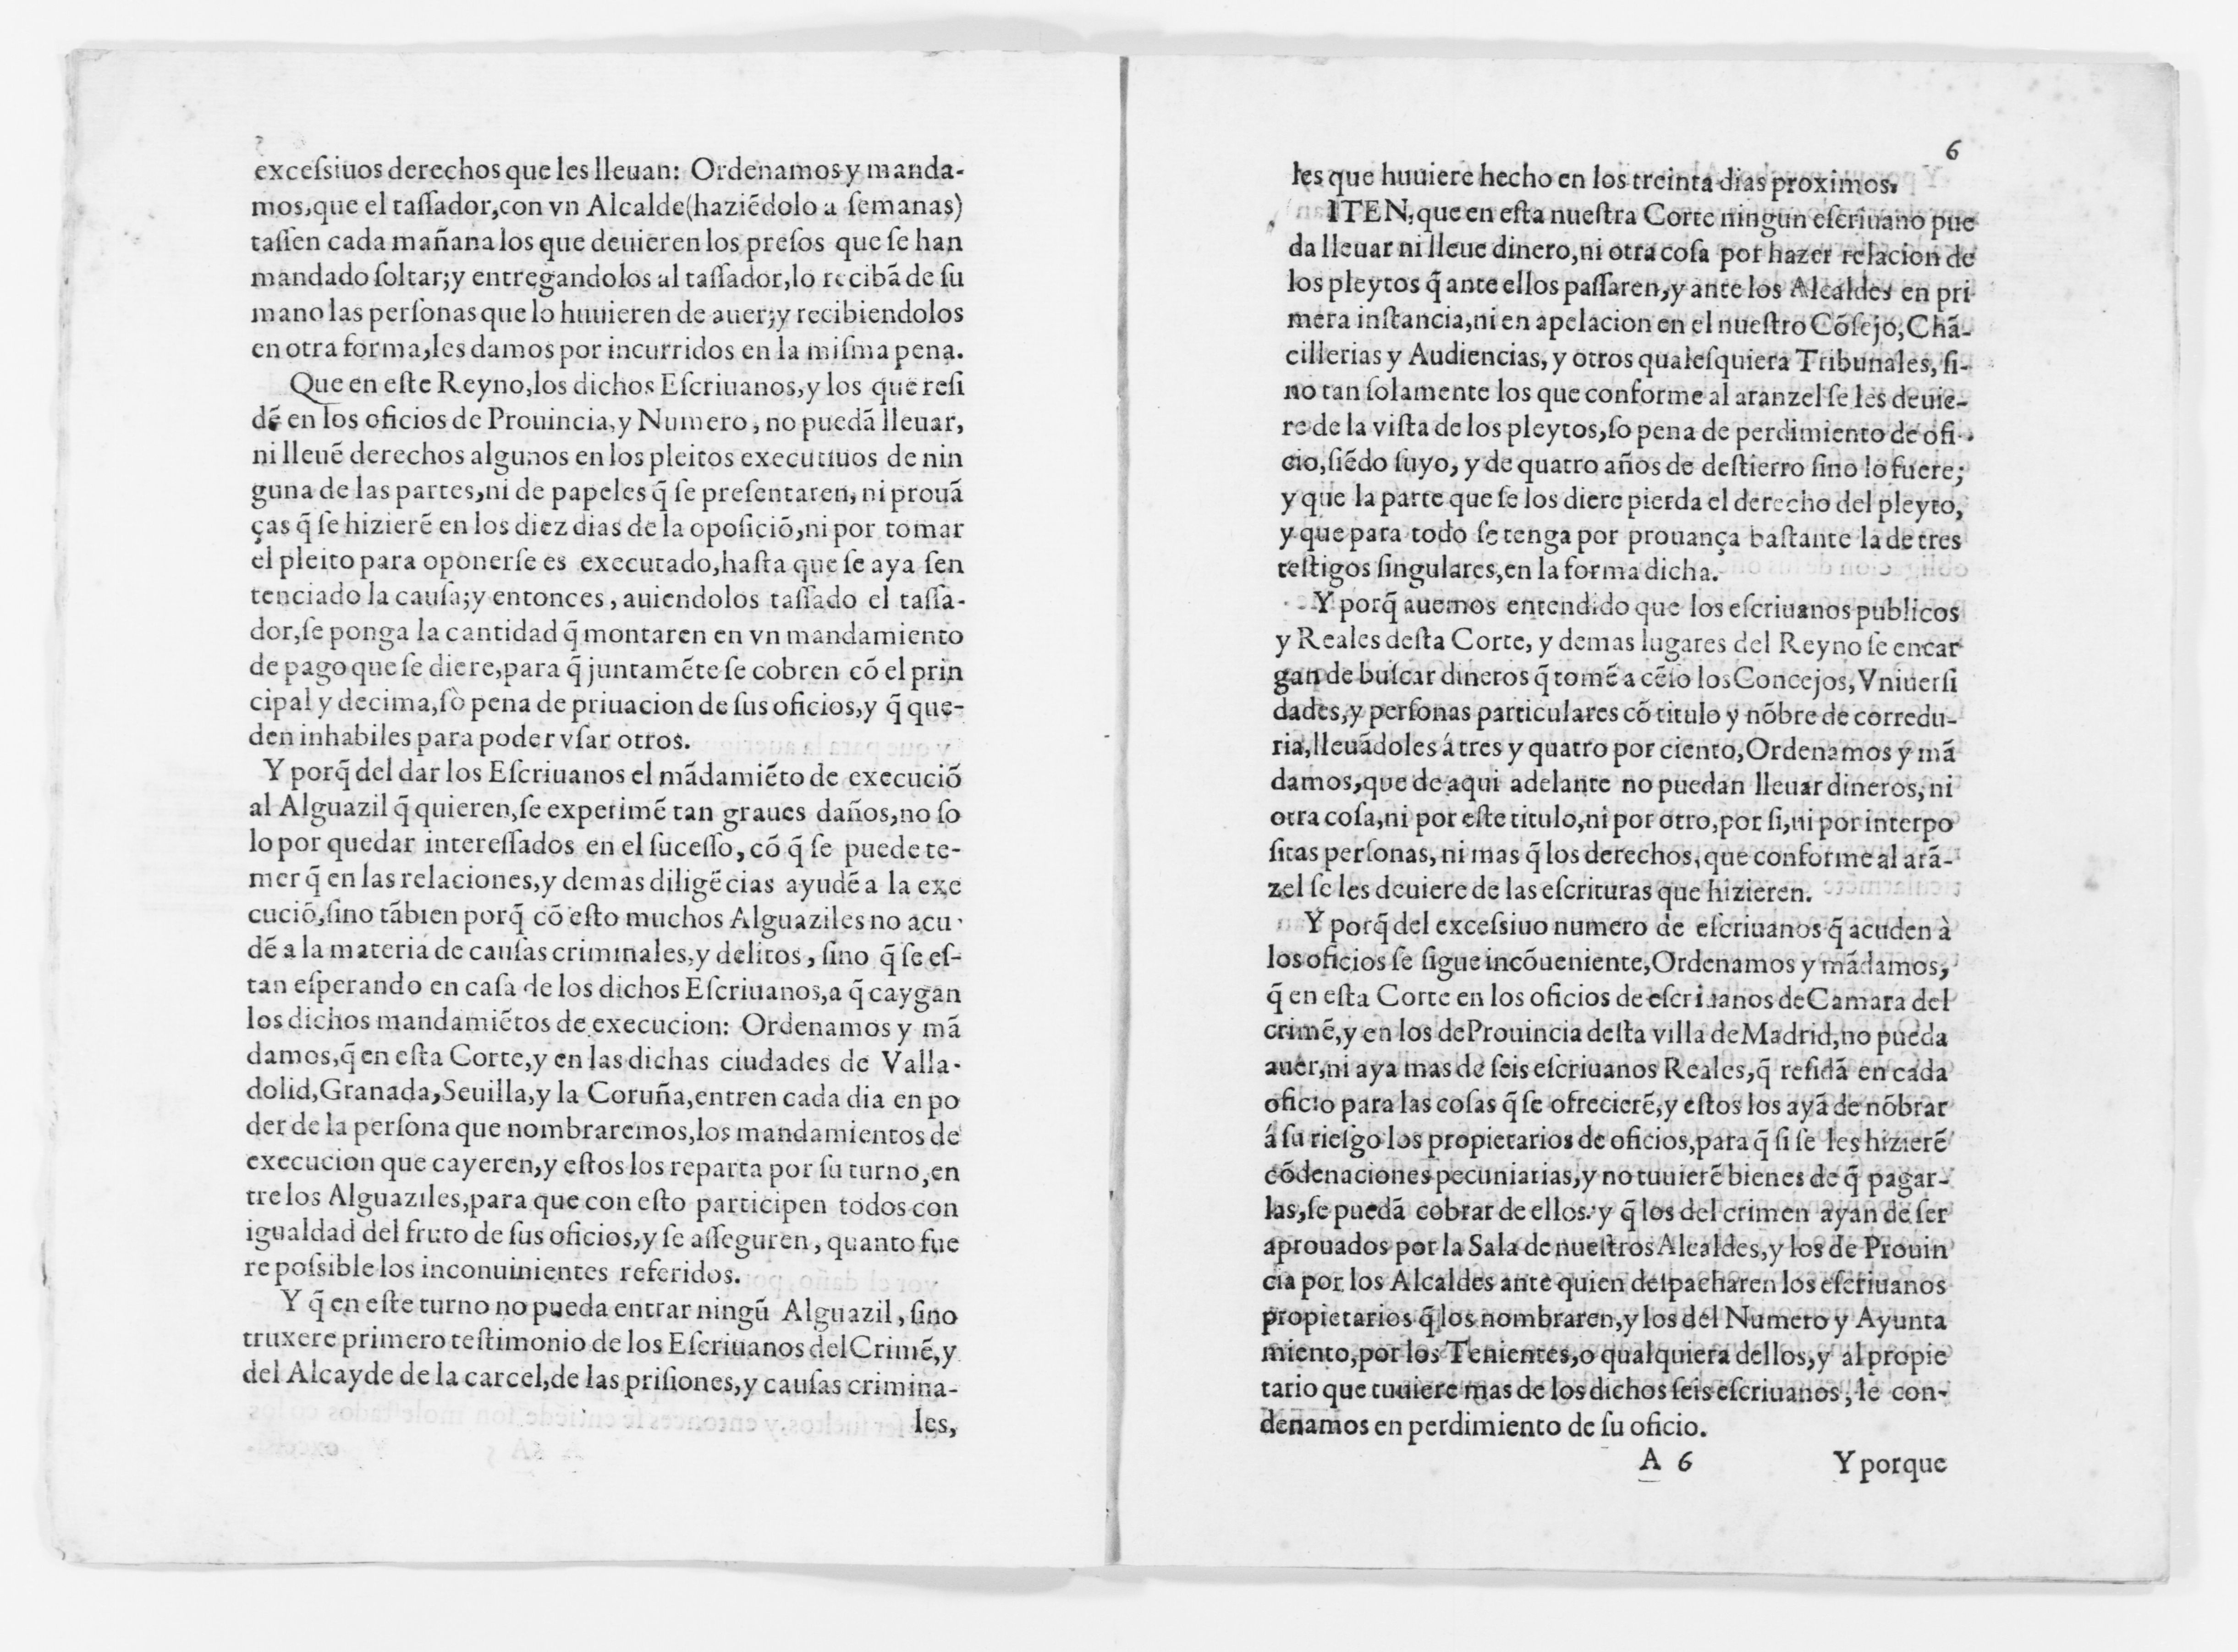 exceſsiuos derechos que les lleuan: Ordenamos y manda-
mos, que el taſſador, con vn Alcalde (haziẽdolo a ſemanas)
taſſen cada mañana los que deuieren los preſos que ſe han
mandado ſoltar; y entregandolos al taſſador, lo recibã de ſu
mano las perſonas que lo huuieren de auer; y recibiendolos
en otra forma, les damos por incurridos en la miſma pena.
Que en eſte Reyno, los dichos Eſcriuanos, y los que reſi
dẽ en los oficios de Prouincia, y Numero, no puedã lleuar,
ni lleuẽ derechos algunos en los pleitos executiuos de nin
guna de las partes, ni de papeles q̃ ſe preſentaren, ni prouã
ças q̃ ſe hizierẽ en los diez dias de la opoſiciõ, ni por tomar
el pleito para oponerſe es executado, haſta que ſe aya ſen
tenciado la cauſa; y entonces, auiendolos taſſado el taſſa-
dor, ſe ponga la cantidad q̃ montaren en vn mandamiento
de pago que ſe diere, para q̃ juntamẽte ſe cobren cõ el prin
cipal y decima, ſò pena de priuacion de ſus oficios, y q̃ que-
den inhabiles para poder vſar otros.
Y porq̃ del dar los Eſcriuanos el mãdamiẽto de execuciõ
al Alguazil q̃ quieren, ſe experimẽ tan graues daños, no ſo
lo por quedar intereſſados en el ſuceſſo, cõ q̃ ſe puede te-
mer q̃ en las relaciones, y demas diligẽcias ayudẽ a la exe
cuciõ, ſino tãbien porq̃ cõ eſto muchos Alguaziles no acu-
dẽ a la materia de cauſas criminales, y delitos, ſino q̃ ſe eſ-
tan eſperando en caſa de los dichos Eſcriuanos, a q̃ caygan
los dichos mandamiẽtos de execucion: Ordenamos y mã
damos, q̃ en eſta Corte, y en las dichas ciudades de Valla-
dolid, Granada, Seuilla, y la Coruña, entren cada dia en po
der de la perſona que nombraremos, los mandamientos de
execucion que cayeren, y eſtos los reparta por ſu turno, en
tre los Alguaziles, para que con eſto participen todos con
igualdad del fruto de ſus oficios, y ſe aſſeguren, quanto fue
re poſsible los inconuinientes referidos.
Y q̃ en eſte turno no pueda entrar ningũ Alguazil, ſino
truxere primero teſtimonio de los Eſcriuanos del Crimẽ, y
del Alcayde de la carcel, de las priſiones, y cauſas crimina-
les,
6
les que huuiere hecho en los treinta dias proximos.
ITEN, que en eſta nueſtra Corte ningun eſcriuano pue
da lleuar ni lleue dinero, ni otra coſa por hazer relacion de
los pleytos q̃ ante ellos paſſaren, y ante los Alcaldes en pri
mera inſtancia, ni en apelacion en el nueſtro Cõſejo, Chã-
cillerias y Audiencias, y otros qualeſquiera Tribunales, ſi-
no tan ſolamente los que conforme al aranzel ſe les deuie-
re de la viſta de los pleytos, ſo pena de perdimiento de ofi-
cio, ſiẽdo ſuyo, y de quatro años de deſtierro ſino lo fuere;
y que la parte que ſe los diere pierda el derecho del pleyto,
y que para todo ſe tenga por prouança baſtante la de tres
teſtigos ſingulares, en la forma dicha.
Y porq̃ auemos entendido que los eſcriuanos publicos
y Reales deſta Corte, y demas lugares del Reyno ſe encar
gan de buſcar dineros q̃ tomẽ a cẽſo los Concejos, Vniuerſi
dades, y perſonas particulares cõ titulo y nõbre de corredu-
ria, lleuãdoles á tres y quatro por ciento, Ordenamos y mã
damos, que de aqui adelante no puedan lleuar dineros, ni
otra coſa, ni por eſte titulo, ni por otro, por ſi, ni por interpo
ſitas perſonas, ni mas q̃ los derechos, que conforme al arã-
zel ſe les deuiere de las eſcrituras que hizieren.
Y porq̃ del exceſsiuo numero de eſcriuanos q̃ acuden à
los oficios ſe ſigue incõueniente, Ordenamos y mãdamos,
q̃ en eſta Corte en los oficios de eſcriuanos de Camara del
crimẽ, y en los de Prouincia deſta villa de Madrid, no pueda
auer, ni aya mas de ſeis eſcriuanos Reales, q̃ reſidã en cada
oficio para las coſas q̃ ſe ofrecierẽ, y eſtos los ayã de nõbrar
á ſu rieſgo los propietarios de oficios, para q̃ ſi ſe les hizierẽ
cõdenaciones pecuniarias, y no tuuierẽ bienes de q̃ pagar-
las, ſe puedã cobrar de ellos: y q̃ los del crimen ayan de ſer
aprouados por la Sala de nueſtros Alcaldes, y los de Prouin
cia por los Alcaldes ante quien deſpacharen los eſcriuanos
propietarios q̃ los nombraren, y los del Numero y Ayunta
miento, por los Tenientes, o qualquiera dellos, y al propie
tario que tuuiere mas de los dichos ſeis eſcriuanos, le con-
denamos en perdimiento de ſu oficio.
A 6 Y porque